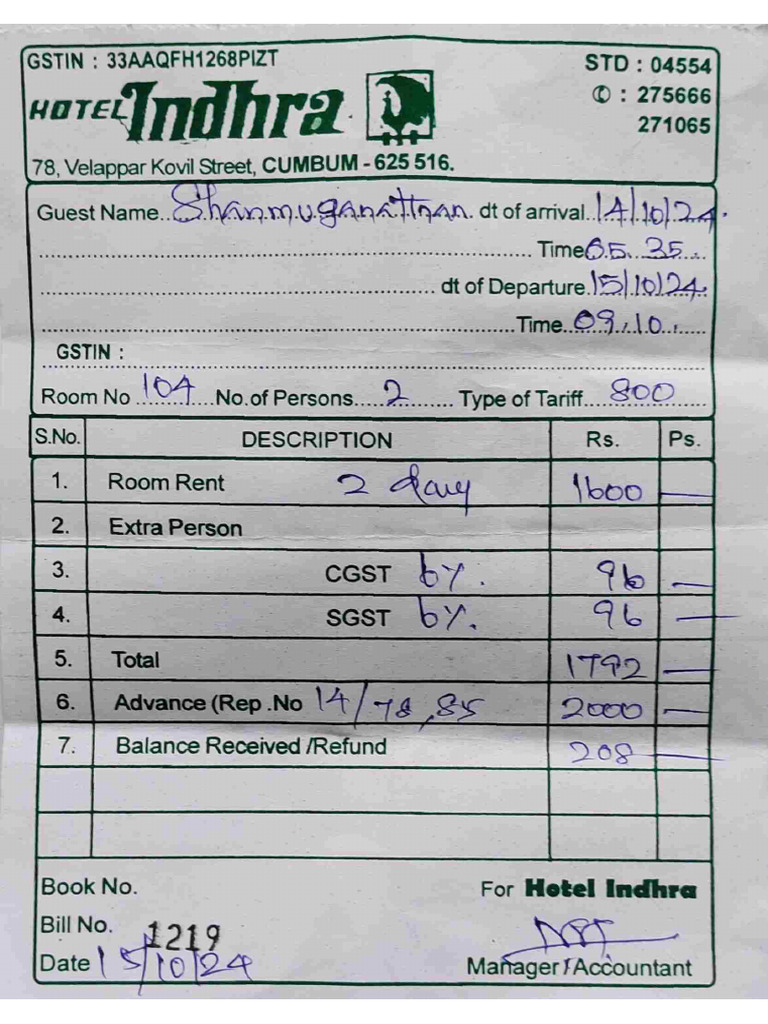 GSTIN : 33AAQFH1268PIZT
STD : 04554
HOTEL Indhra
✆ : 275666
271065
78, Velappar Kovil Street, CUMBUM - 625 516.
Guest Name.. Shanmuganathan. dt of arrival..14/10/24.
Time 05.35
dt of Departure 15/10/24
Time 09.10
GSTIN :
Room No 104 No.of Persons 2 Type of Tariff 800
S.No. DESCRIPTION Rs. Ps.
1. Room Rent 2 day 1600 —
2. Extra Person
3. CGST 6%. 96 —
4. SGST 6%. 96 —
5. Total 1792 —
6. Advance (Rep .No 14/78,85 2000 —
7. Balance Received /Refund 208 —
Book No.
For Hotel Indhra
Bill No. 1219
Date 15/10/24
Manager / Accountant